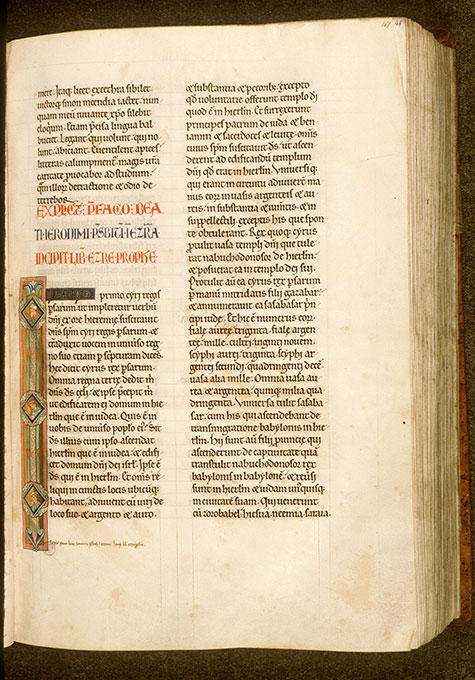 mere. Itaq; licet excetra sibilet
victorq; sinon incendia iactet. nun
quam meum iuvante xpo silebit
eloqium. Etiam precisa lingua bal
butiet. Legant qui volunt. qui no
lunt. abiciant. Eventilent apices.
litteras calumpnientur. magis vra
caritate provocabor ad studium.
qm illor detractione & odio de
terrebor.
EXPLICIT PFACIO BEA
TI IERONIMI PSBITI I EZRA
INCIPIT LIB EZRE PROPHE
primo cyri regis
psarum ut impleretur verbu
dni ex ore hieremie. suscitavit
dns spm cyri regis psarum. &
traduxit vocem in universo reg
no suo etiam p scripturam dices.
Hec dicit cyrus rex psarum.
Omnia regna terre dedit m
dns ds celi. & ipse precepit m
ut edificarem ei domum in hie
rlm que e in iudea. Quis e in
vobis de universo poplo ei? Sit
ds illius cum ipso. ascendat
hierlm que e in iudea. & edifi
cet domum dni dei isrl. Ipse e
ds qui e in hierlm. Et oms re
liqui in cunctis locis ubicuq;
habitant. adiuvent eu viri de
loco suo. & argento & auro.
& substantia & pecorib; excepto
qd voluntarie offerunt templo di
quod e in hierlm. Et surrexerunt
principes patrum de iuda & ben
iamin & sacerdotes & levite. omis
cuius spm suscitavit ds. ut ascen
derent ad edificandum templum
dni qd erat in hierlm. Universiq;
qui erant in circuitu adiuverunt ma
nus eor in vasis argenteis & au
reis. in substantia & iumtis. & in
suppellectili. exceptis his que spon
te obtulerant. Rex quoq; cyrus
ptulit vasa templi dni que tule
rat nabuchodonosor de hierlm.
& posuerat ea in templo dei sui.
Protulit au ea cyrus rex psarum
p manu mitridatis filii gazabar.
& annumeravit ea sasabasar prin
cipi iude. Et hic e numerus eor.
fiale auree triginta. fiale argen
tee mille. cultri viginti novem.
scyphi aurei triginta. scyphi ar
gentei secundi quadringenti dece.
vasa alia mille. Omnia vasa au
rea & argentea. quinq; milia qua
dringenta. Universa tulit sasaba
sar. cum his qui ascendebant de
transmigratione babylonis in hie
rlm. Hii sunt au filii pvincie qui
ascenderunt de captivitate qua
transtulit nabuchodonosor rex
babylonis in babylone. & reversi
sunt in hierlm & iudam unusquisq;
in civitate suam. Qui venerunt
cu zorobabel. hiesua. neemia. saraia.